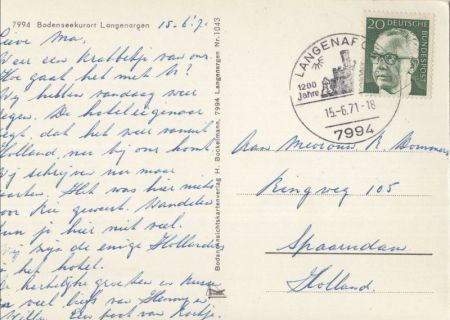 7994 Bodenseekurort Langenargen
15.6.71
Lieve Ma.
Weer een krabbeltje van ons.
Hoe gaat het met U?
Wij hebben vandaag weer
regen. De hoteleigenaar
zegt, dat het weer vanuit
Holland, naar bij ons komt
Wij schrijven nu maar
kaarten. Het was hier niets
voor geweest. Wandelen
kun je hier niet veel.
Wij zijn de enige Hollanders
in het hotel.
De hartelijke groeten en kussen
en veel liefs van Henny en
Willem. Een poot van
Bodansichtskartenverlag H. Bockelmann, 7994 Langenargen Nr. 1043
LANGENARGEN
1200
Jahre
15.-6.71-18
7994
20 DEUTSCHE
BUNDESPOST
Aan Mevrouw K. Dommers
Ringweg 105
Spaarndam
Holland.